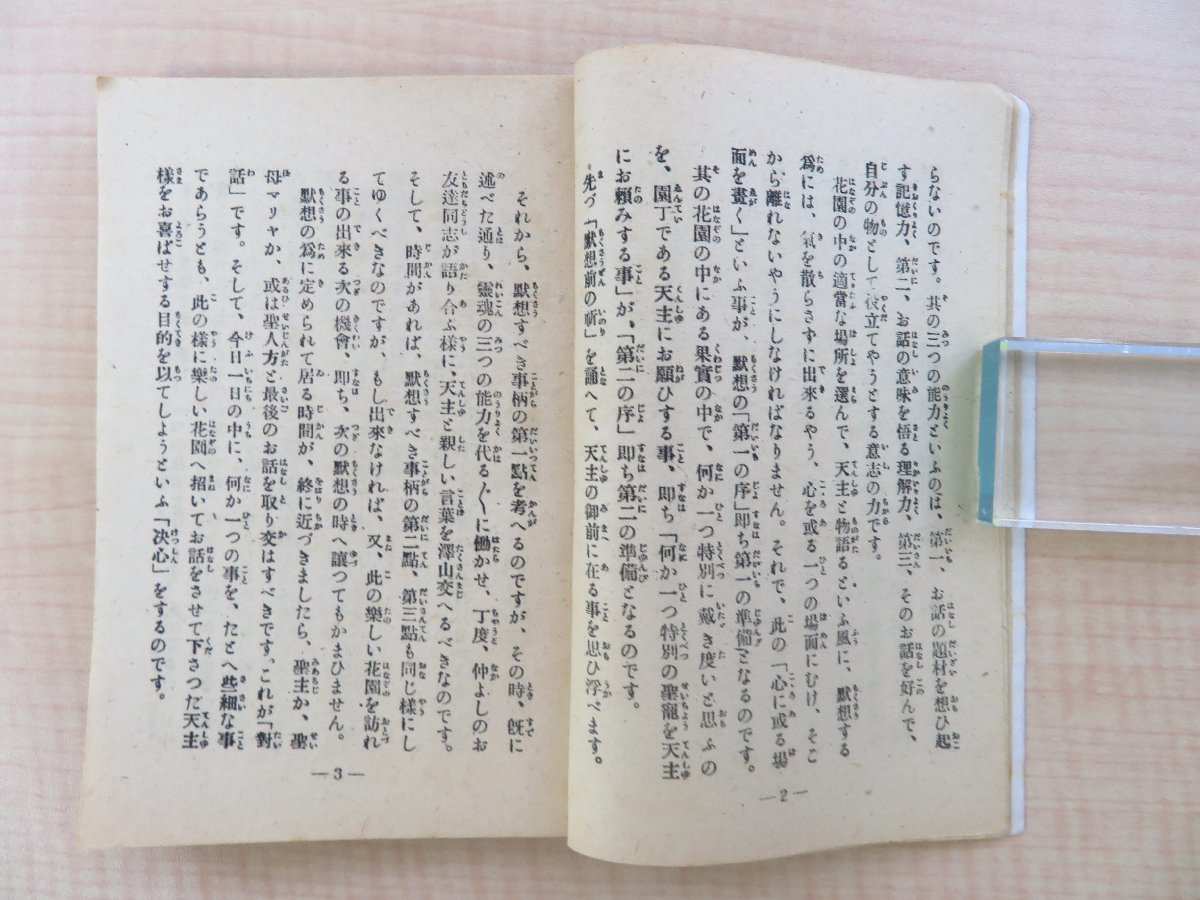 らないのです。其の三つの能力といふのは、第一、お話の題材を想ひ起
す記憶力、第二、お話の意味を悟る理解力、第三、そのお話を好んで、
自分の物として役立てやうとする意志の力です。
花園の中の適當な場所を選んで、天主と物語るといふ風に、默想する
爲には、氣を散らさずに出來るやう、心を或る一つの場面にむけ、そこ
から離れないやうにしなければなりません。それで、此の「心に或る場
面を畫く」といふ事が、默想の「第一の序」即ち第一の準備となるのです。
其の花園の中にある果實の中で、何か一つ特別に戴き度いと思ふの
を、園丁である天主にお願ひする事、即ち「何か一つ特別の聖寵を天主
にお頼みする事」が、「第二の序」即ち第二の準備となるのです。
先づ「默想前の祈」を誦へて、天主の御前に在る事を思ひ浮べます。
—2—
それから、默想すべき事柄の第一點を考へるのですが、その時、既に
述べた通り、靈魂の三つの能力を代る〱に働かせ、丁度、仲よしのお
友達同志が語り合ふ様に、天主と親しい言葉を澤山交へるべきなのです。
そして、時間があれば、默想すべき事柄の第二點、第三點も同じ様にし
てゆくべきなのですが、もし出來なければ、又、此の樂しい花園を訪れ
る事の出來る次の機會、即ち、次の默想の時へ讓つてもかまひません。
默想の爲に定められて居る時間が、終に近づきましたら、聖主か、聖
母マリヤか、或は聖人方と最後のお話を取り交はすべきです。これが「對
話」です。そして、今日一日の中に、何か一つの事を、たとへ些細な事
であらうとも、此の様に樂しい花園へ招いてお話をさせて下さつた天主
様をお喜ばせする目的を以てしようといふ「決心」をするのです。
—3—